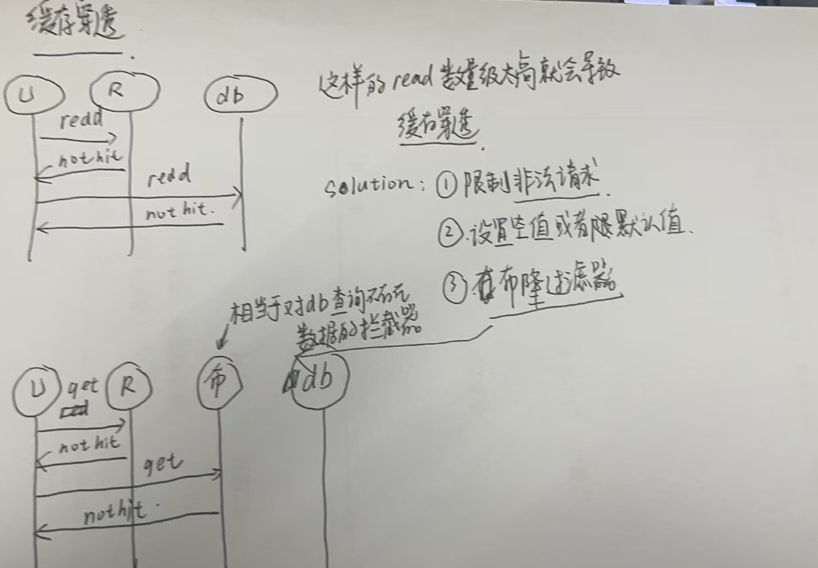 缓存穿透
U R db
read
not hit
read
not hit.
这样的read数量级太高就会导致
缓存穿透.
solution: ① 限制非法请求.
② 设置空值或者限默认值.
③ 布隆过滤器
相当于对db查询不存在
数据的拦截器
U R 布 db
get
not hit
get
not hit.